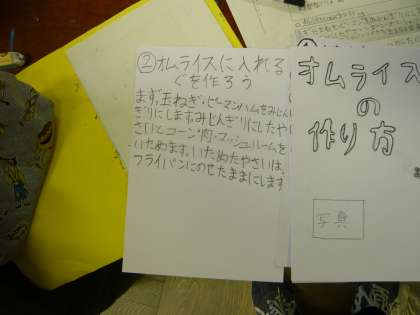 ②オムライスに入れる
ぐを作ろう
まず,玉ねぎ,ピーマンハムをみじん
ぎりにします。みじんぎりにしたや
さいとコーン,肉,マッシュルームを
いためます。いためたやさいは,
フライパンにのせたままにします
オムライス
の
作り方
写真